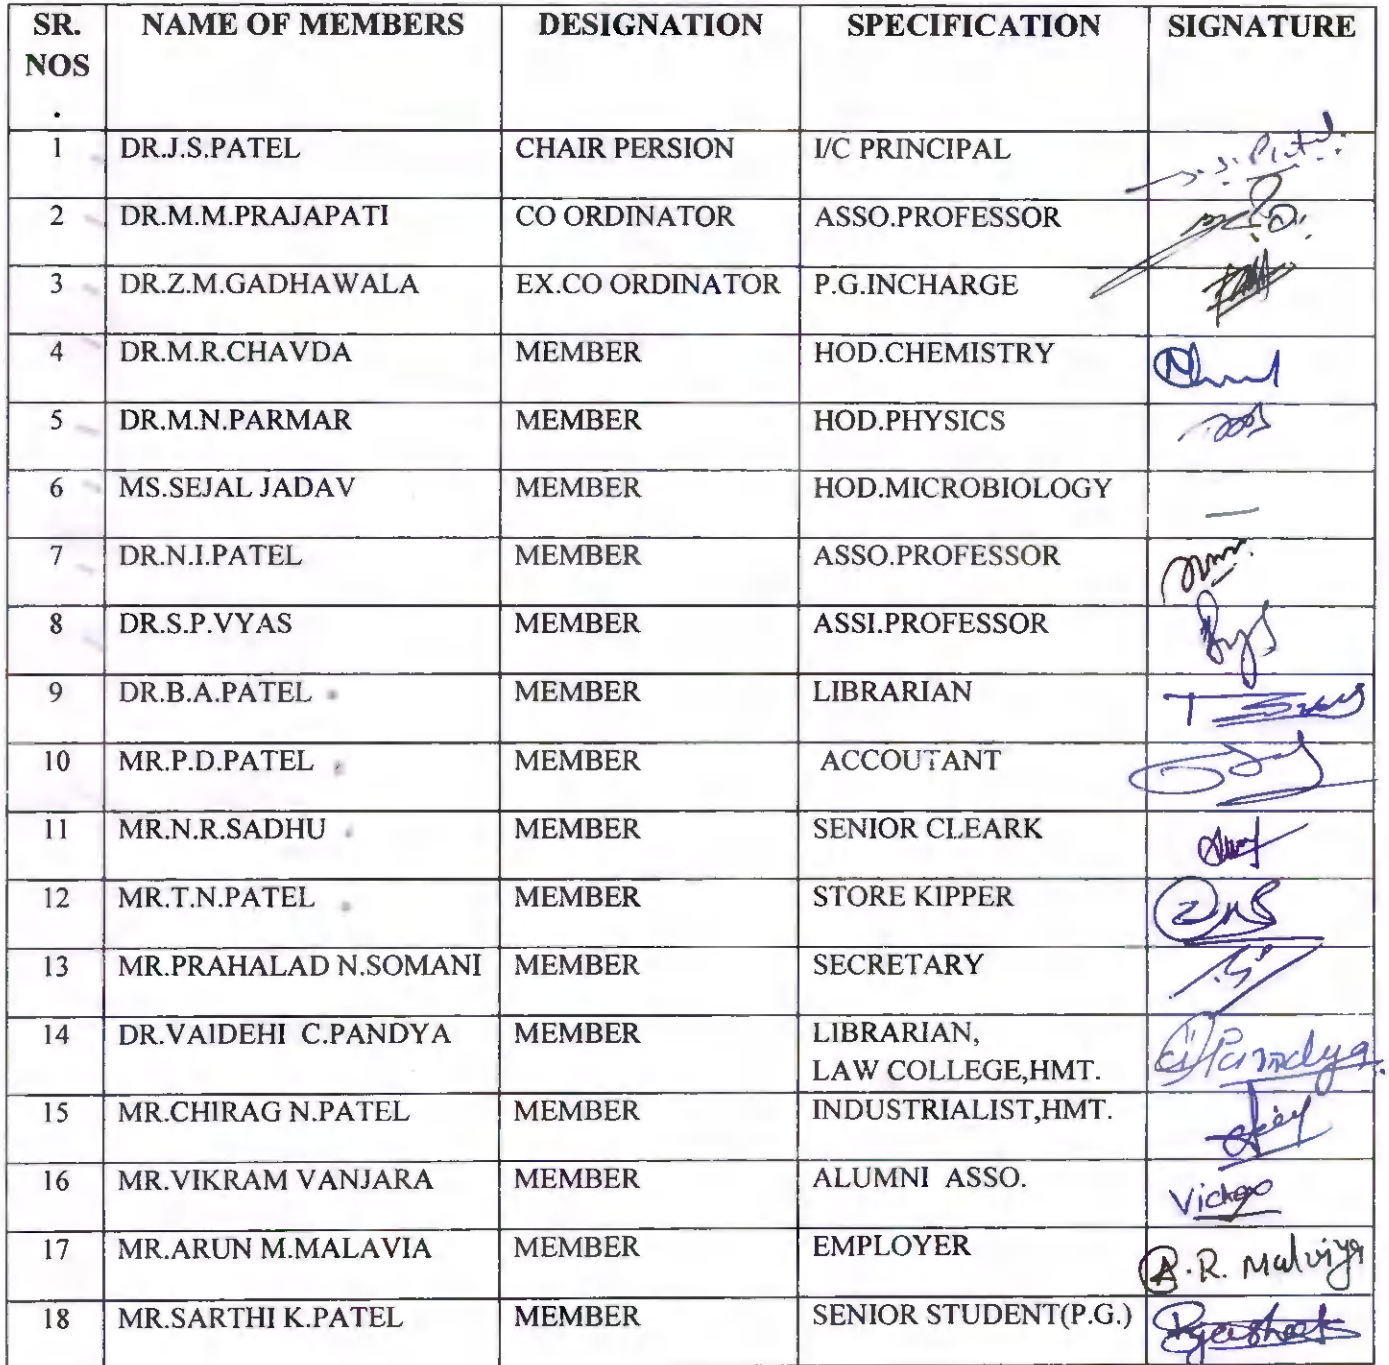 SR. NOS . NAME OF MEMBERS DESIGNATION SPECIFICATION SIGNATURE
1 DR.J.S.PATEL CHAIR PERSION I/C PRINCIPAL J.S.Patel
2 DR.M.M.PRAJAPATI CO ORDINATOR ASSO.PROFESSOR
3 DR.Z.M.GADHAWALA EX.CO ORDINATOR P.G.INCHARGE
4 DR.M.R.CHAVDA MEMBER HOD.CHEMISTRY
5 DR.M.N.PARMAR MEMBER HOD.PHYSICS
6 MS.SEJAL JADAV MEMBER HOD.MICROBIOLOGY —
7 DR.N.I.PATEL MEMBER ASSO.PROFESSOR
8 DR.S.P.VYAS MEMBER ASSI.PROFESSOR
9 DR.B.A.PATEL MEMBER LIBRARIAN
10 MR.P.D.PATEL MEMBER ACCOUTANT
11 MR.N.R.SADHU MEMBER SENIOR CLEARK
12 MR.T.N.PATEL MEMBER STORE KIPPER
13 MR.PRAHALAD N.SOMANI MEMBER SECRETARY
14 DR.VAIDEHI C.PANDYA MEMBER LIBRARIAN, Pandya
LAW COLLEGE,HMT.
15 MR.CHIRAG N.PATEL MEMBER INDUSTRIALIST,HMT.
16 MR.VIKRAM VANJARA MEMBER ALUMNI ASSO.
17 MR.ARUN M.MALAVIA MEMBER EMPLOYER A.R. Malviya
18 MR.SARTHI K.PATEL MEMBER SENIOR STUDENT(P.G.)